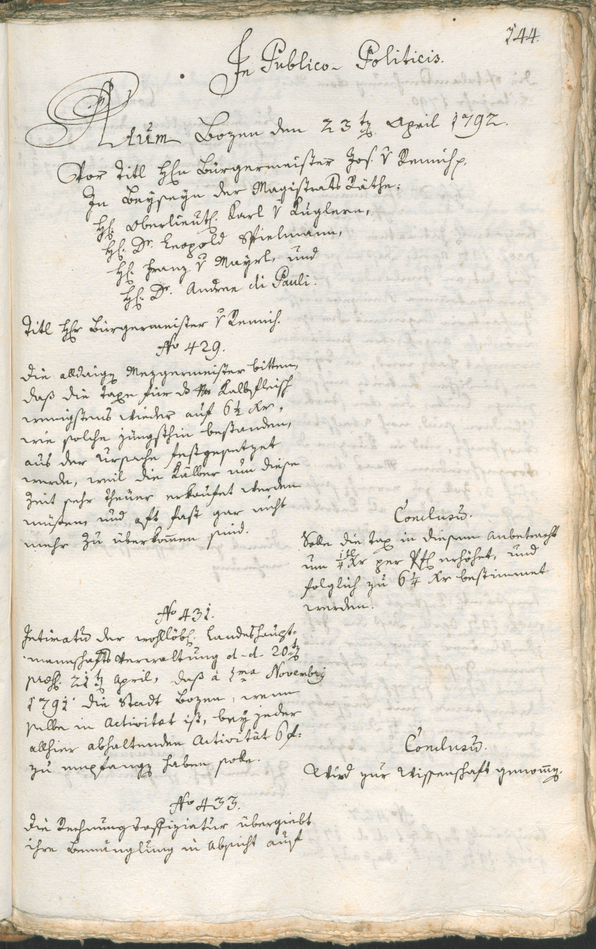 144.
In Publico-Politicis.
Actum Bozen den 23ten April 1792.
Vor Titl Hhn Bürgermeister Jos: v Remich
In Beyseyn der Magistrats Räthe:
Hh. Oberlieut. Karl v Kuglern,
Hh. Dr. Leopold Spielmann,
Hh. Franz v Mayrl, und
Hh. Dr. Andree di Pauli.
Titl Hhr Bürgermeister v Remich.
No 429.
Die alldaigen Mezgermeister bitten,
daß die Taxe für das Kalbfleisch
wenigstens wieder auf 6½ Kr,
wie solche jüngsthin bestanden,
aus der Ursache festgesetzet
werde, weil die Kälber um diese
Zeit sehr theuer erkaufet werden
müßten und oft fast gar nicht
mehr zu überkommen sind.
Conclusum.
Solle die Tax in diesem Anbetracht
um Kr per erhöhet, und
folglich zu 6¼ Kr bestimmet
werden.
No 431.
Intimatum der wohllöbl. Landeshaupt-
mannschafts Verwaltung d. d. 20ten
21ten April, daß à 1ma Novembris
1791 die Stadt Bozen, wenn
selbe in Activitat ist, bey jeder
allhier abhaltenden Activität 6 f.
zu empfangen haben solle.
Conclusum.
Wird zur Wissenschaft genommen.
No 433.
Die Rechnungsoffiziatur übergiebt
ihre in Absicht auf